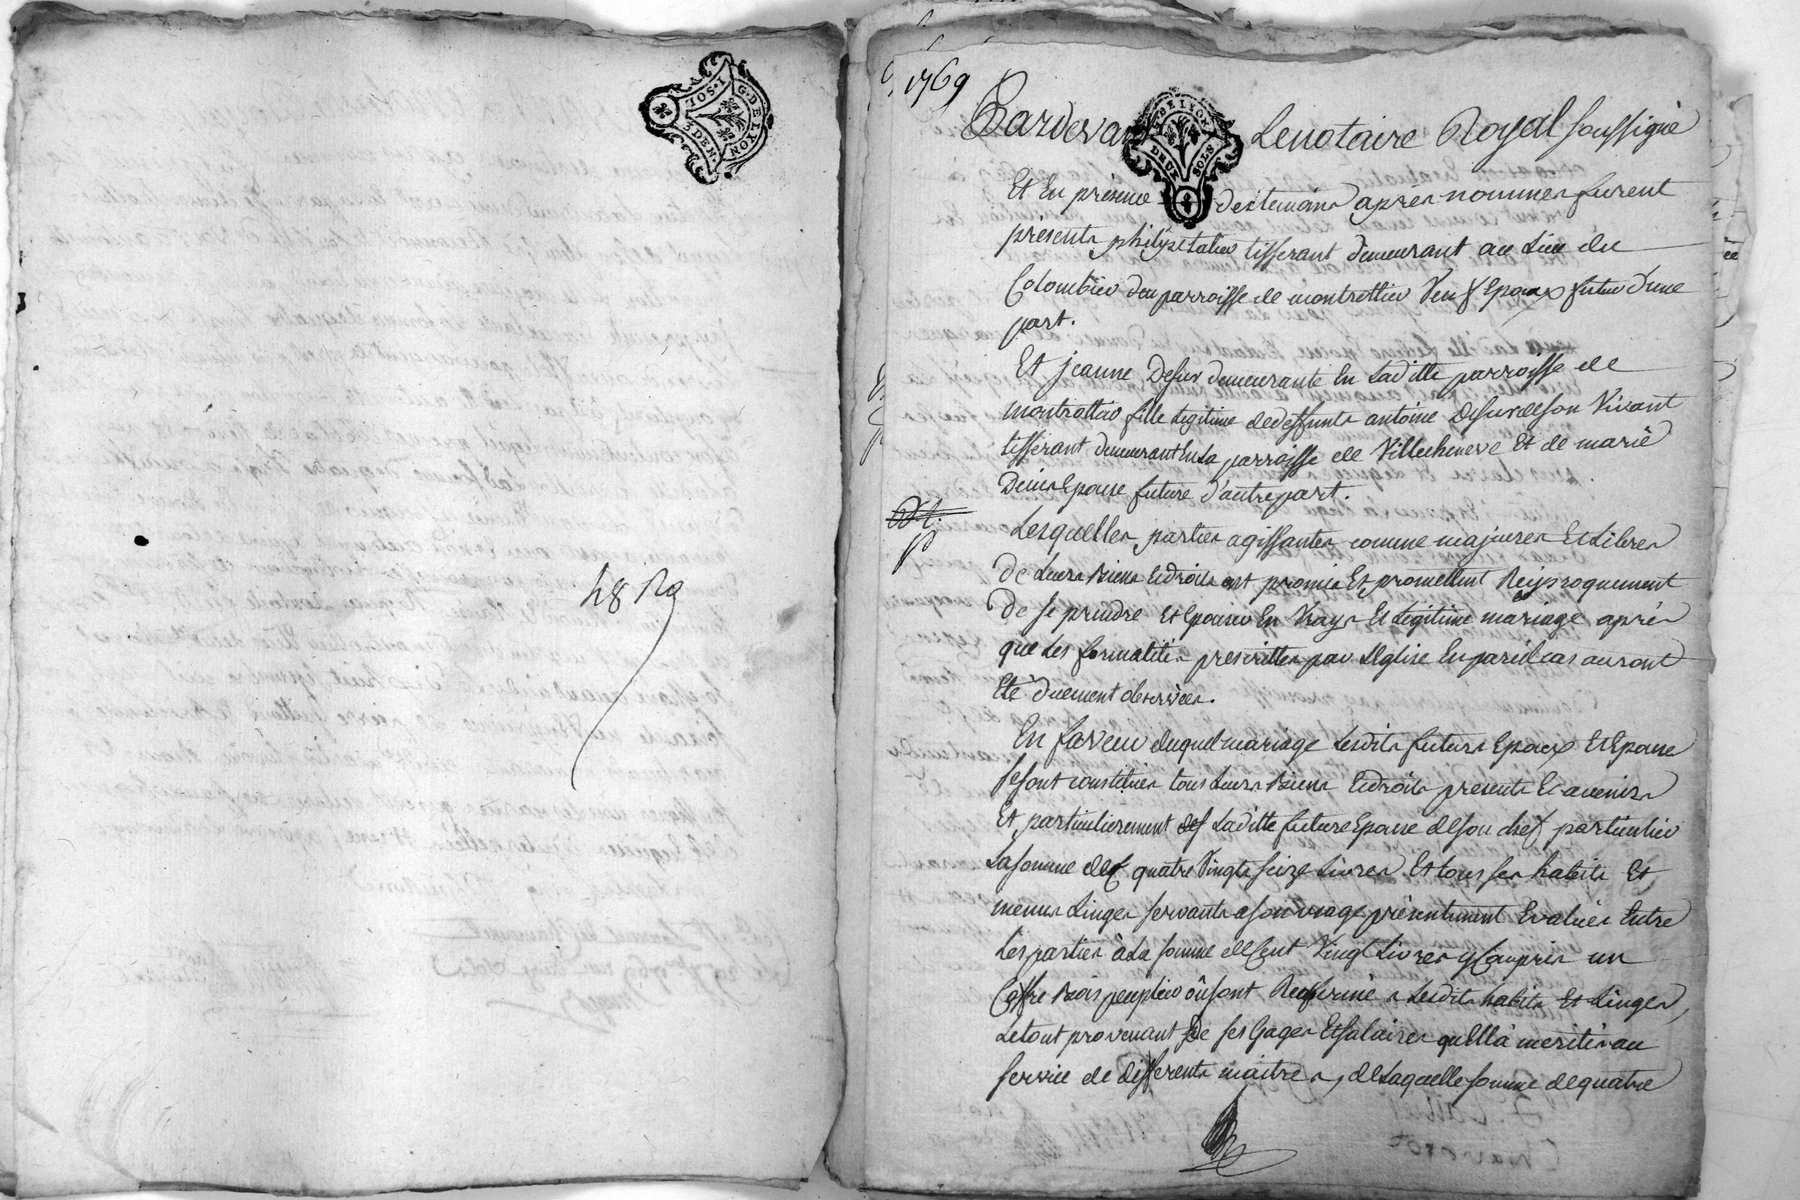 G. DE LYON
1 SOL 3 DEN.
48 Ro
1769
Pardevant Lenotaire Royal soussigné
G. DE LYON
DEUX SOLS
Et En présence des temoins aprés nommes furent
présents philipe talier tisserant demeurant au Lieu du
Colombier dou parroisse de montrottier Veuf Epoux futur d'une
part.
Et jeanne Desur demeurante En Laditte parroisse de
montrottier fille Legitime de deffunts antoine Desur de son Vivant
tisserant demeurant En La parroisse de Villecheneve Et de marie
Epouse future d'autre part.
Lesquelles parties agissantes comme majeures Et Libres
De Leurs Biens Et droits ont promis Et promettent Reciproquement
De se prendre Et Epouser En Vray Et Legitime mariage aprés
que Les formalités prescrittes par L'Eglise En pareil cas auront
Eté düement observées.
En faveur duquel mariage Lesdits futurs Epoux Et Epouse
se sont constitués tous Leurs Biens Et droits presents Et avenirs
Et particulierement Laditte future Epouse de son chef particulier
La somme de quatre Vingts seize Livres Et tous ses habits Et
menus Linges servants a son usage présentement Evalués Entre
Les parties à La somme de Cent Vingt Livres y Compris un
Coffre Bois peuplier où sont Renfermés Lesdits habits Et Linges,
Le tout provenant De ses Gages Et salaires qu'Ella merités au
service de differents maitres, de Laquelle somme de quatre